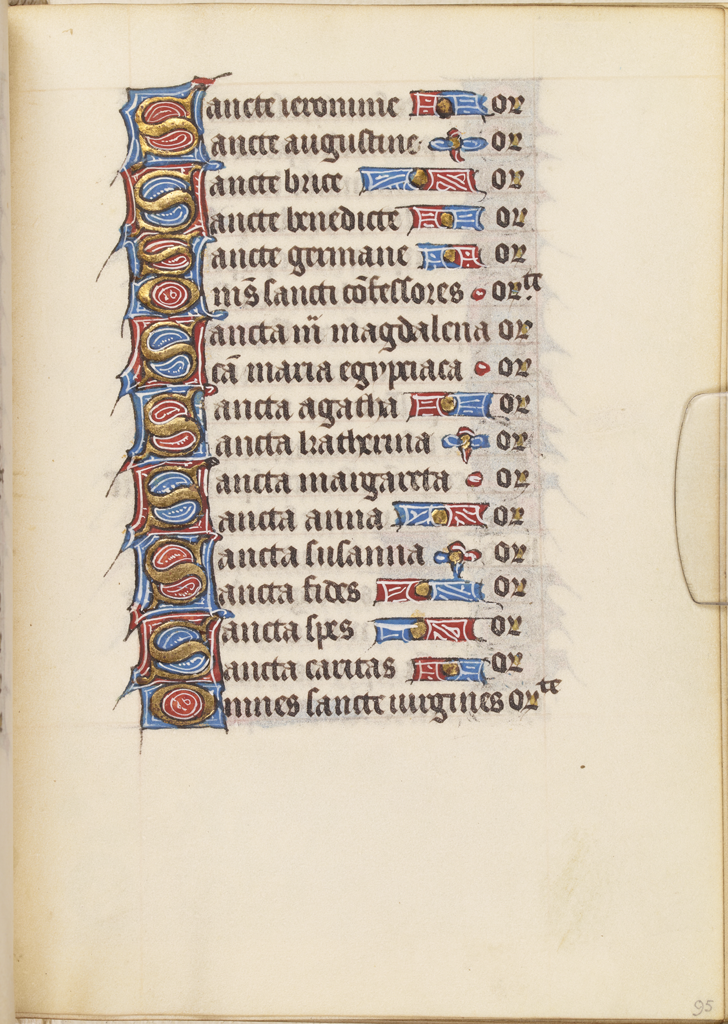 Sancte ieronime or
Sancte augustine or
Sancte brice or
Sancte benedicte or
Sancte germane or
Om̅s sancti co̅fessores or.te
Sancta m̅ magdalena or
Sca̅ maria egyptiaca or
Sancta agatha or
Sancta katherina or
Sancta margareta or
Sancta anna or
Sancta susanna or
Sancta fides or
Sancta spes or
Sancta caritas or
Omnes sancte uirgines orte
95